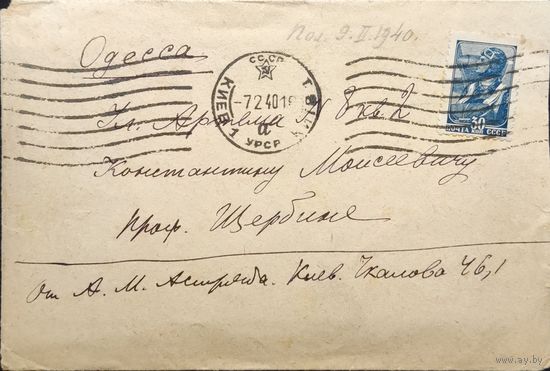 Пол. 9.II.1940.
Одесса
СССР
КИЕВ 1
-7.2.40 1
а
УРСР
30
ПОЧТА СССР
Ул. Артема № 8 кв 2
Константину Моисеевичу
проф. Щербине
От А. М. Киев. Чкалова 46,1
www.ay.by